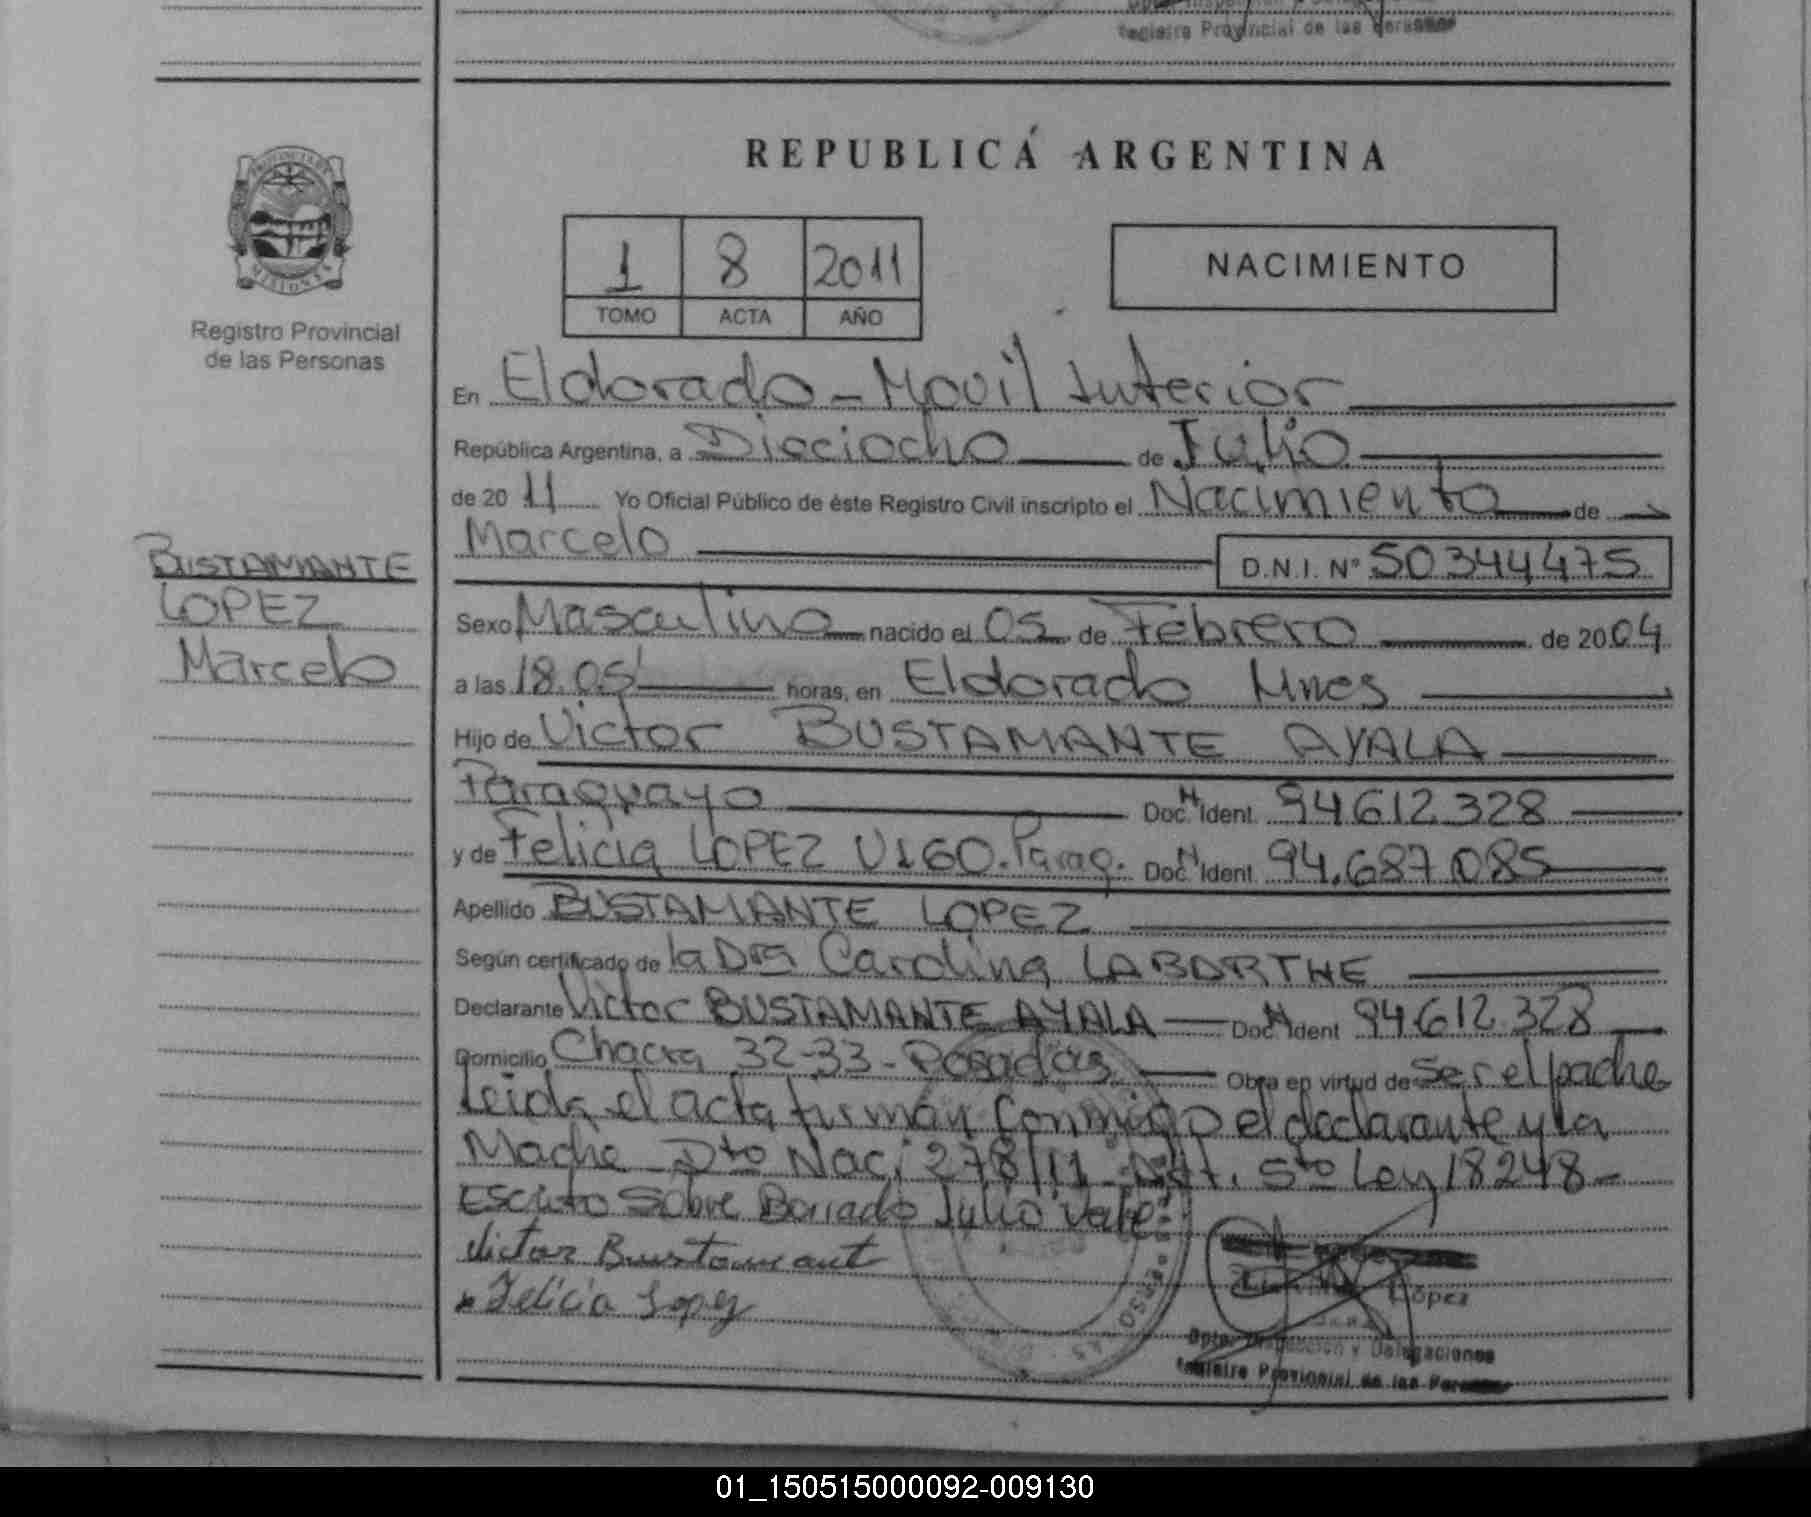 Registro Provincial de las Personas
REPUBLICÁ ARGENTINA
1 8 2011
TOMO ACTA AÑO
NACIMIENTO
PROVINCIA DE
MISIONES
Registro Provincial
de las Personas
BUSTAMANTE
LOPEZ
Marcelo
En Eldorado - Movil Interior
República Argentina, a Dieciocho de Julio
de 20 11 Yo Oficial Público de éste Registro Civil inscripto el Nacimiento de
Marcelo D.N.I. Nº 50344475
Sexo Masculino nacido el 05 de Febrero de 2004
a las 18.05' horas, en Eldorado Mnes
Hijo de Victor BUSTAMANTE AYALA
Paraguayo Doc. N Ident. 94612328
y de Felicia LOPEZ VIGO. Parag. Doc. N Ident. 94.687.085
Apellido BUSTAMANTE LOPEZ
Según certificado de la Dra Carolina LABORTHE
Declarante Victor BUSTAMANTE AYALA Doc. N Ident 94.612.328
Domicilio Chacra 32-33 - Posadas Obra en virtud de ser el padre
Leida el acta firman conmigo el declarante y la
Madre Dto Nac. 278/11 - Art. 5to Ley 18248 -
Escrito Sobre Borrado Julio Vale:
Victor Bustamant
Felicia Lopez
López
Dpto. Inspección y Delegaciones
Registro Provincial de las Personas
01_150515000092-009130